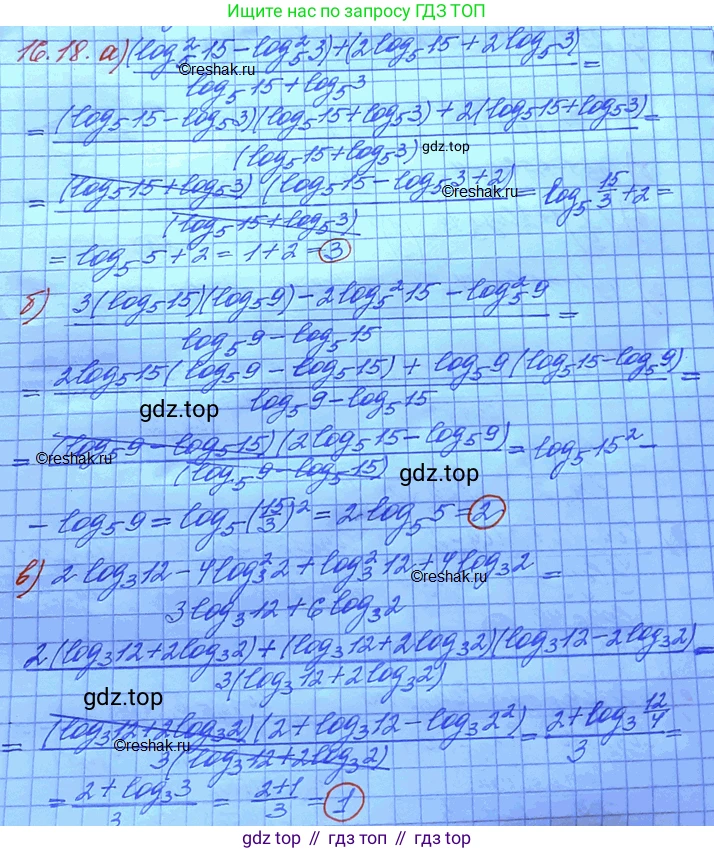 Ищите нас по запросу ГДЗ ТОП
16.18. а) (log₅²15 − log₅²3) + (2log₅15 + 2log₅3) / log₅15 + log₅3 =
©reshak.ru
= (log₅15 − log₅3)(log₅15 + log₅3) + 2(log₅15 + log₅3) / (log₅15 + log₅3) =
gdz.top
= (log₅15 + log₅3)(log₅15 − log₅3 + 2) / (log₅15 + log₅3) = log₅ 15/3 + 2 =
©reshak.ru
= log₅5 + 2 = 1 + 2 = 3
б) 3(log₅15)(log₅9) − 2log₅²15 − log₅²9 / log₅9 − log₅15 =
= 2log₅15(log₅9 − log₅15) + log₅9(log₅15 − log₅9) / log₅9 − log₅15 =
gdz.top
= (log₅9 − log₅15)(2log₅15 − log₅9) / (log₅9 − log₅15) = log₅15² −
©reshak.ru
gdz.top
− log₅9 = log₅(15/3)² = 2log₅5 = 2
в) 2log₃12 − 4log₃²2 + log₃²12 + 4log₃2 / 3log₃12 + 6log₃2 =
©reshak.ru
2(log₃12 + 2log₃2) + (log₃12 + 2log₃2)(log₃12 − 2log₃2) / 3(log₃12 + 2log₃2) =
gdz.top
= (log₃12 + 2log₃2)(2 + log₃12 − log₃2²) / 3(log₃12 + 2log₃2) = 2 + log₃ 12/4 / 3 =
©reshak.ru
= 2 + log₃3 / 3 = 2+1 / 3 = 1
gdz top // гдз топ // gdz.top